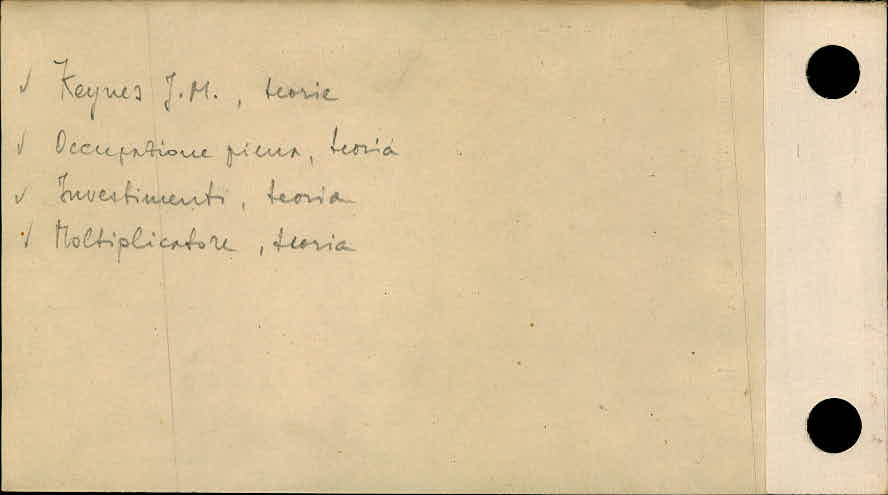 √ Keynes J. M., teorie
√ Occupazione piena, teoria
√ Investimenti, teoria
√ Moltiplicatore, teoria